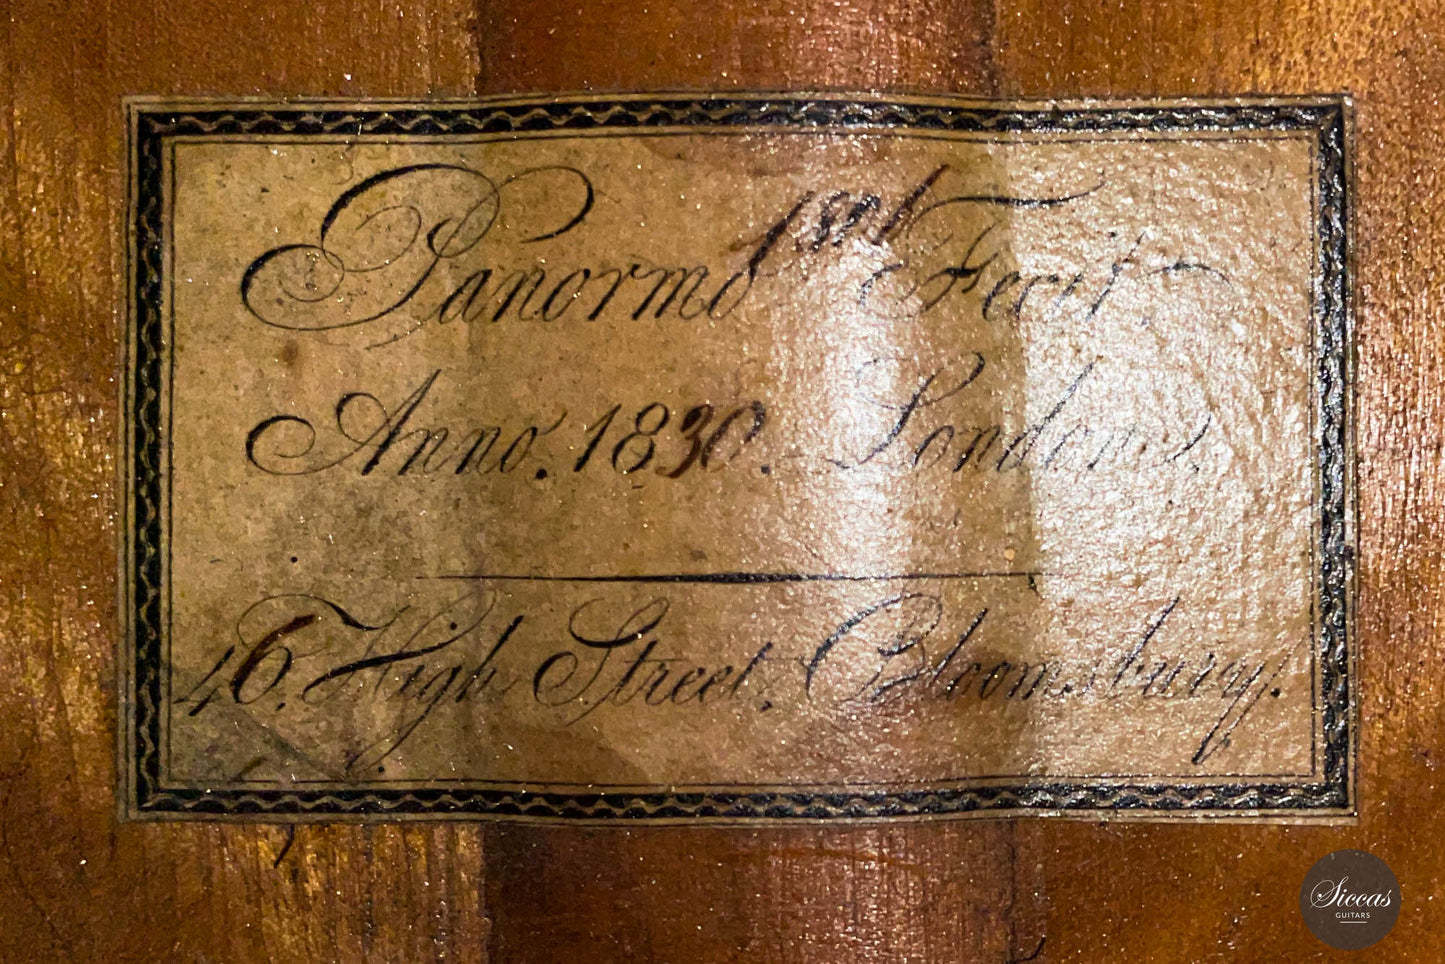 Panormo Fecit.
Anno. 1830. London.
46. High Street, Bloomsbury.
Siccas
GUITARS